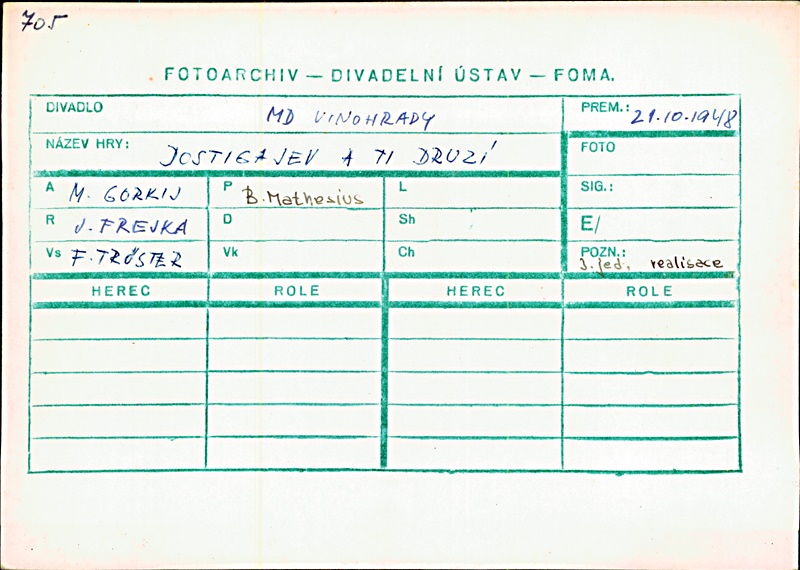 705
FOTOARCHIV — DIVADELNÍ ÚSTAV — FOMA.
DIVADLO MD VINOHRADY PREM.: 21.10.1948
NÁZEV HRY: DOSTIGAJEV A TI DRUZÍ FOTO
A M. GORKIJ P B. Mathesius L SIG.:
R J. FREJKA D Sh E/
Vs F. TRÖSTER Vk Ch POZN.: 3. jed. realisace
HEREC ROLE HEREC ROLE